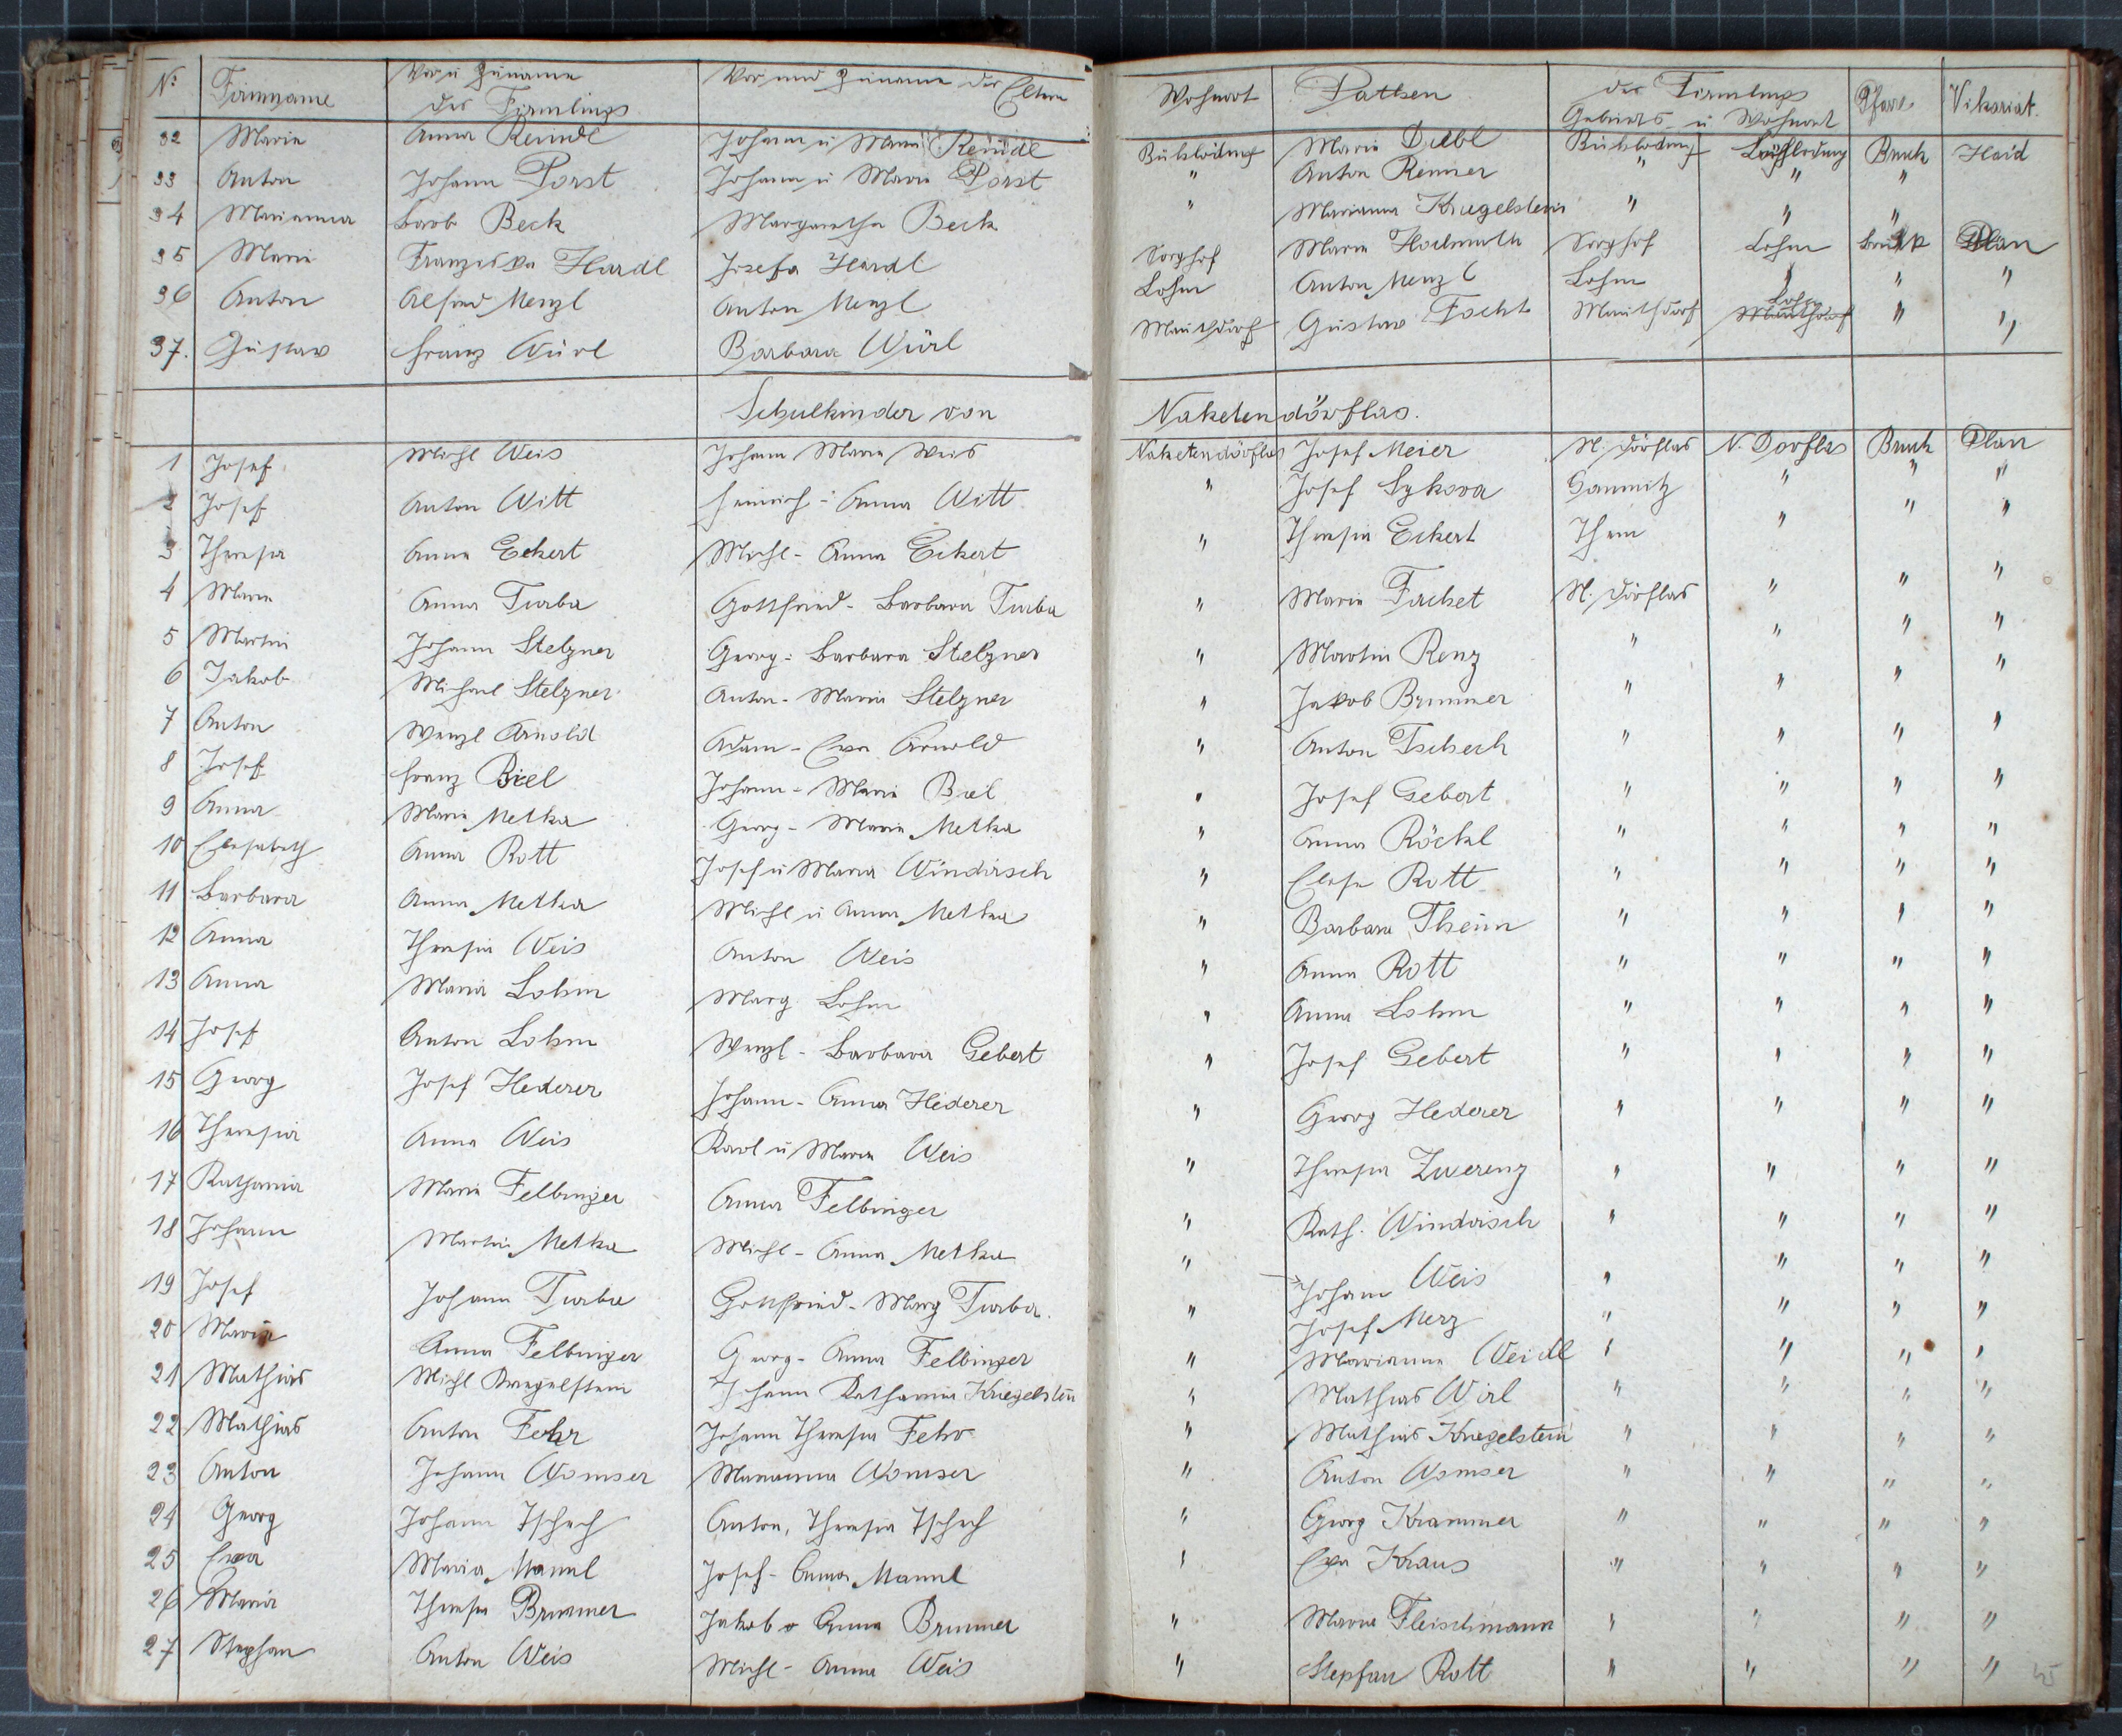 No Firmname Vor u Zuname des Firmlings Vor und Zuname der Eltern Wohnort Pathen des Firmlings Geburts u Wohnort Pfarre Vikariat.
32 Marie Anna Reindl Johann u Marie Reindl Bühlöding Marie Bühlöding Bruck Haid
33 Anton Johann Porst Johann u Marie Porst " Anton Renner " " "
34 Marianna Barb Beck Margaretha Beck " Marianna Kriegelstein " " "
35 Marie Franziska Hardl Josefa Hardl Sorghof Marie Hochmuth Sorghof Lohm Bruck Plan
36 Anton Alfred Menzl Anton Menzl Lohm Anton Menzl Lohm " " "
37. Gustav Franz Würl Barbara Würl Mauthdorf Gustav Focht Mauthdorf Lohm " "
Schulkinder von Naketendörflas.
1 Josef Michl Weis Johann Marie Weis Naketendörflas Josef Meier N. Dörflas N. Dörflas Bruck Plan
2 Josef Anton Witt Heinrich - Anna Witt " Josef Sykora " " "
3 Theresia Anna Eckert Michl - Anna Eckert " Theresia Eckert Thein " " "
4 Marie Anna Turba Gottfried - Barbara Turba " Marie Fachet N. Dörflas " " "
5 Martin Johann Stelzner Georg - Barbara Stelzner " Martin Renz " " " "
6 Jakob Michael Stelzner Anton - Maria Stelzner " Jakob Brunner " " " "
7 Anton Wenzl Arnold Adam - Eva Arnold " Anton Tschech " " " "
8 Josef Franz Biel Johann - Marie Biel " Josef Gebert " " " "
9 Anna Marie Metka Georg - Marie Metka " Anna Röckl " " " "
10 Elisabeth Anna Rott Josef u Maria Windirsch " Elise Rott " " " "
11 Barbara Anna Metka Michl u Anna Metka " Barbara Thein " " " "
12 Anna Theresia Weis Anton Weis " Anna Rott " " " "
13 Anna Maria Lohm Marg Lohm " Anna Lohm " " " "
14 Josef Anton Lohm Wenzl - Barbara Gebert " Josef Gebert " " " "
15 Georg Josef Hederer Johann - Anna Hederer " Georg Hederer " " " "
16 Theresia Anna Weis Karl u Marie Weis " Theresia Zwerenz " " " "
17 Katharina Marie Felbinger Anna Felbinger " Kath. Windirsch " " " "
18 Johann Martin Metka Michl - Anna Metka " Johann Weis " " " "
19 Josef Johann Turba Gottfried - Marg Turba. " Josef Merz " " " "
20 Marie Anna Felbinger Georg - Anna Felbinger " Marianna Weidl " " " "
21 Mathias Michl Kriegelstein Johann Katharina Kriegelstein " Mathias Wirl " " " "
22 Mathias Anton Fehr Johann Theresia Fehr " Mathias Kriegelstein " " " "
23 Anton Johann Womser Marianna Womser " Anton Womser " " " "
24 Georg Johann Tschech Anton, Theresia Tschech " Georg Krammer " " " "
25 Eva Maria Mannl Josef - Anna Mannl " Eva Kraus " " " "
26 Maria Theresia Brunner Jakob u Anna Brunner " Maria Fleischmann " " " "
27 Stephan Anton Weis Michl - Anna Weis " Stepfan Rott " " " "